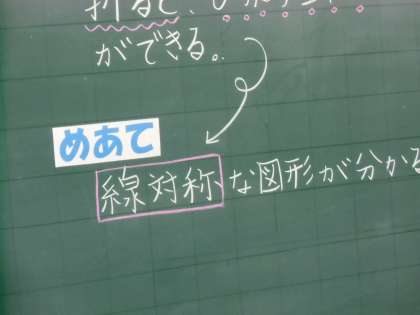 折ると、
ができる。
めあて
線対称な図形が分かる